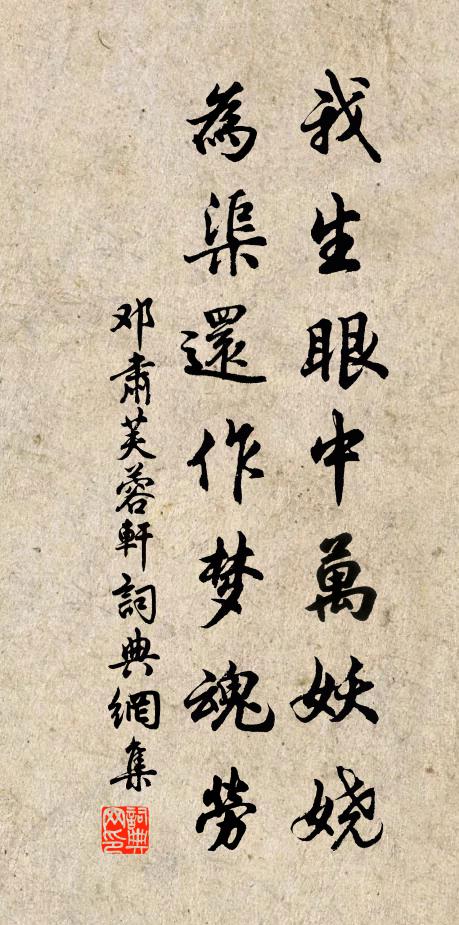 我生眼中萬妖娆
為渠還作梦魂勞
邓肅芙蓉軒詞典網集
詞典網印